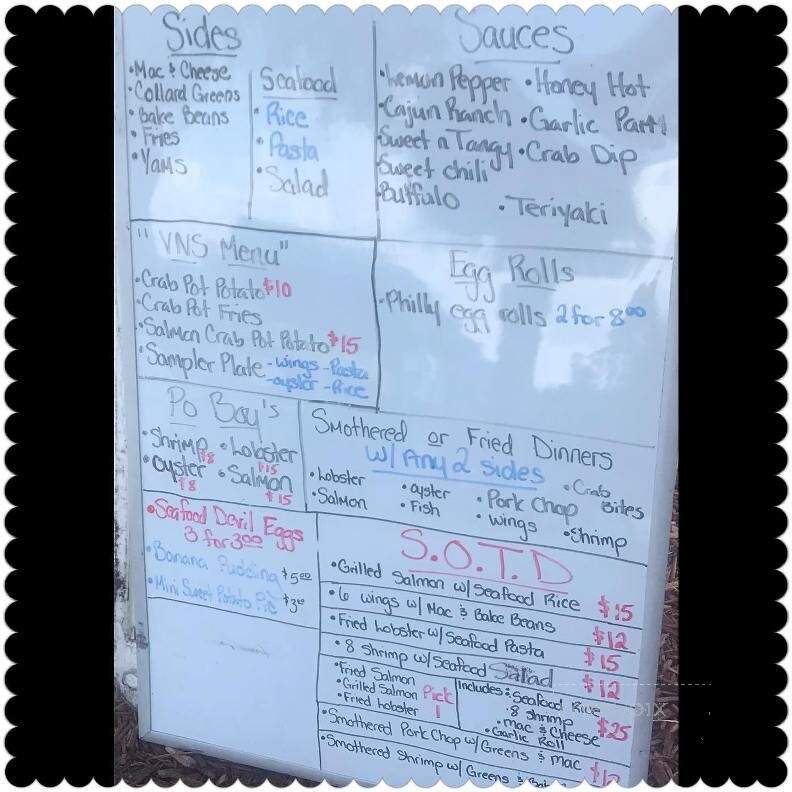 Sides
• Mac & Cheese
• Collard Greens
• Bake Beans
• Fries
• Yams
Seafood
• Rice
• Pasta
• Salad
Sauces
• Lemon Pepper • Honey Hot
• Cajun Ranch • Garlic Parm
Sweet n Tangy • Crab Dip
Sweet chili
Buffalo • Teriyaki
"VNS Menu"
• Crab Pot Potato $10
• Crab Pot Fries
• Salmon Crab Pot Potato $15
• Sampler Plate - wings - Pasta
- oyster - Rice
Egg Rolls
• Philly egg rolls 2 for 8.00
Po Boy's
• Shrimp $8 • Lobster $15
• Oyster $8 • Salmon $15
Smothered or Fried Dinners
w/ Any 2 sides
• Lobster • oyster • Pork Chop • Crab Bites
• Salmon • Fish • wings • Shrimp
• Seafood Devil Eggs
3 for 3.00
• Banana Pudding $5.00
• Mini Sweet Potato Pie $3.00
S.O.T.D
• Grilled Salmon w/ Seafood Rice $15
• 6 wings w/ Mac & Bake Beans $12
• Fried Lobster w/ Seafood Pasta $15
• 8 shrimp w/ Seafood Salad $12
• Fried Salmon
• Grilled Salmon
• Fried Lobster
Pick 1
Includes: Seafood Rice
• 8 shrimp
• mac & Cheese
• Garlic Roll
$25
• Smothered Pork Chop w/ Greens & mac
• Smothered Shrimp w/ Greens &